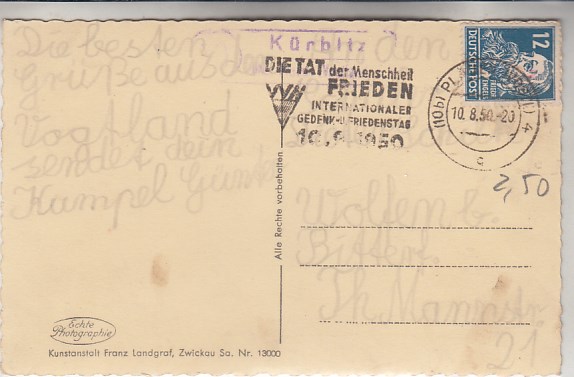 Die besten
Grüße aus dem
Vogtland
sendet dein
Kumpel Günt
Kürbitz
DIE TAT der Menschheit
FRIEDEN
INTERNATIONALER
GEDENK-U.FRIEDENSTAG
10.9.1950
VVN
12
DEUTSCHE POST
(10b) PL
10.8.50.-20
c
2,50
den
Wolfen b.
Bitterf.
Th. Mannstr
21
Alle Rechte vorbehalten
Echte
Photographie
Kunstanstalt Franz Landgraf, Zwickau Sa. Nr. 13000